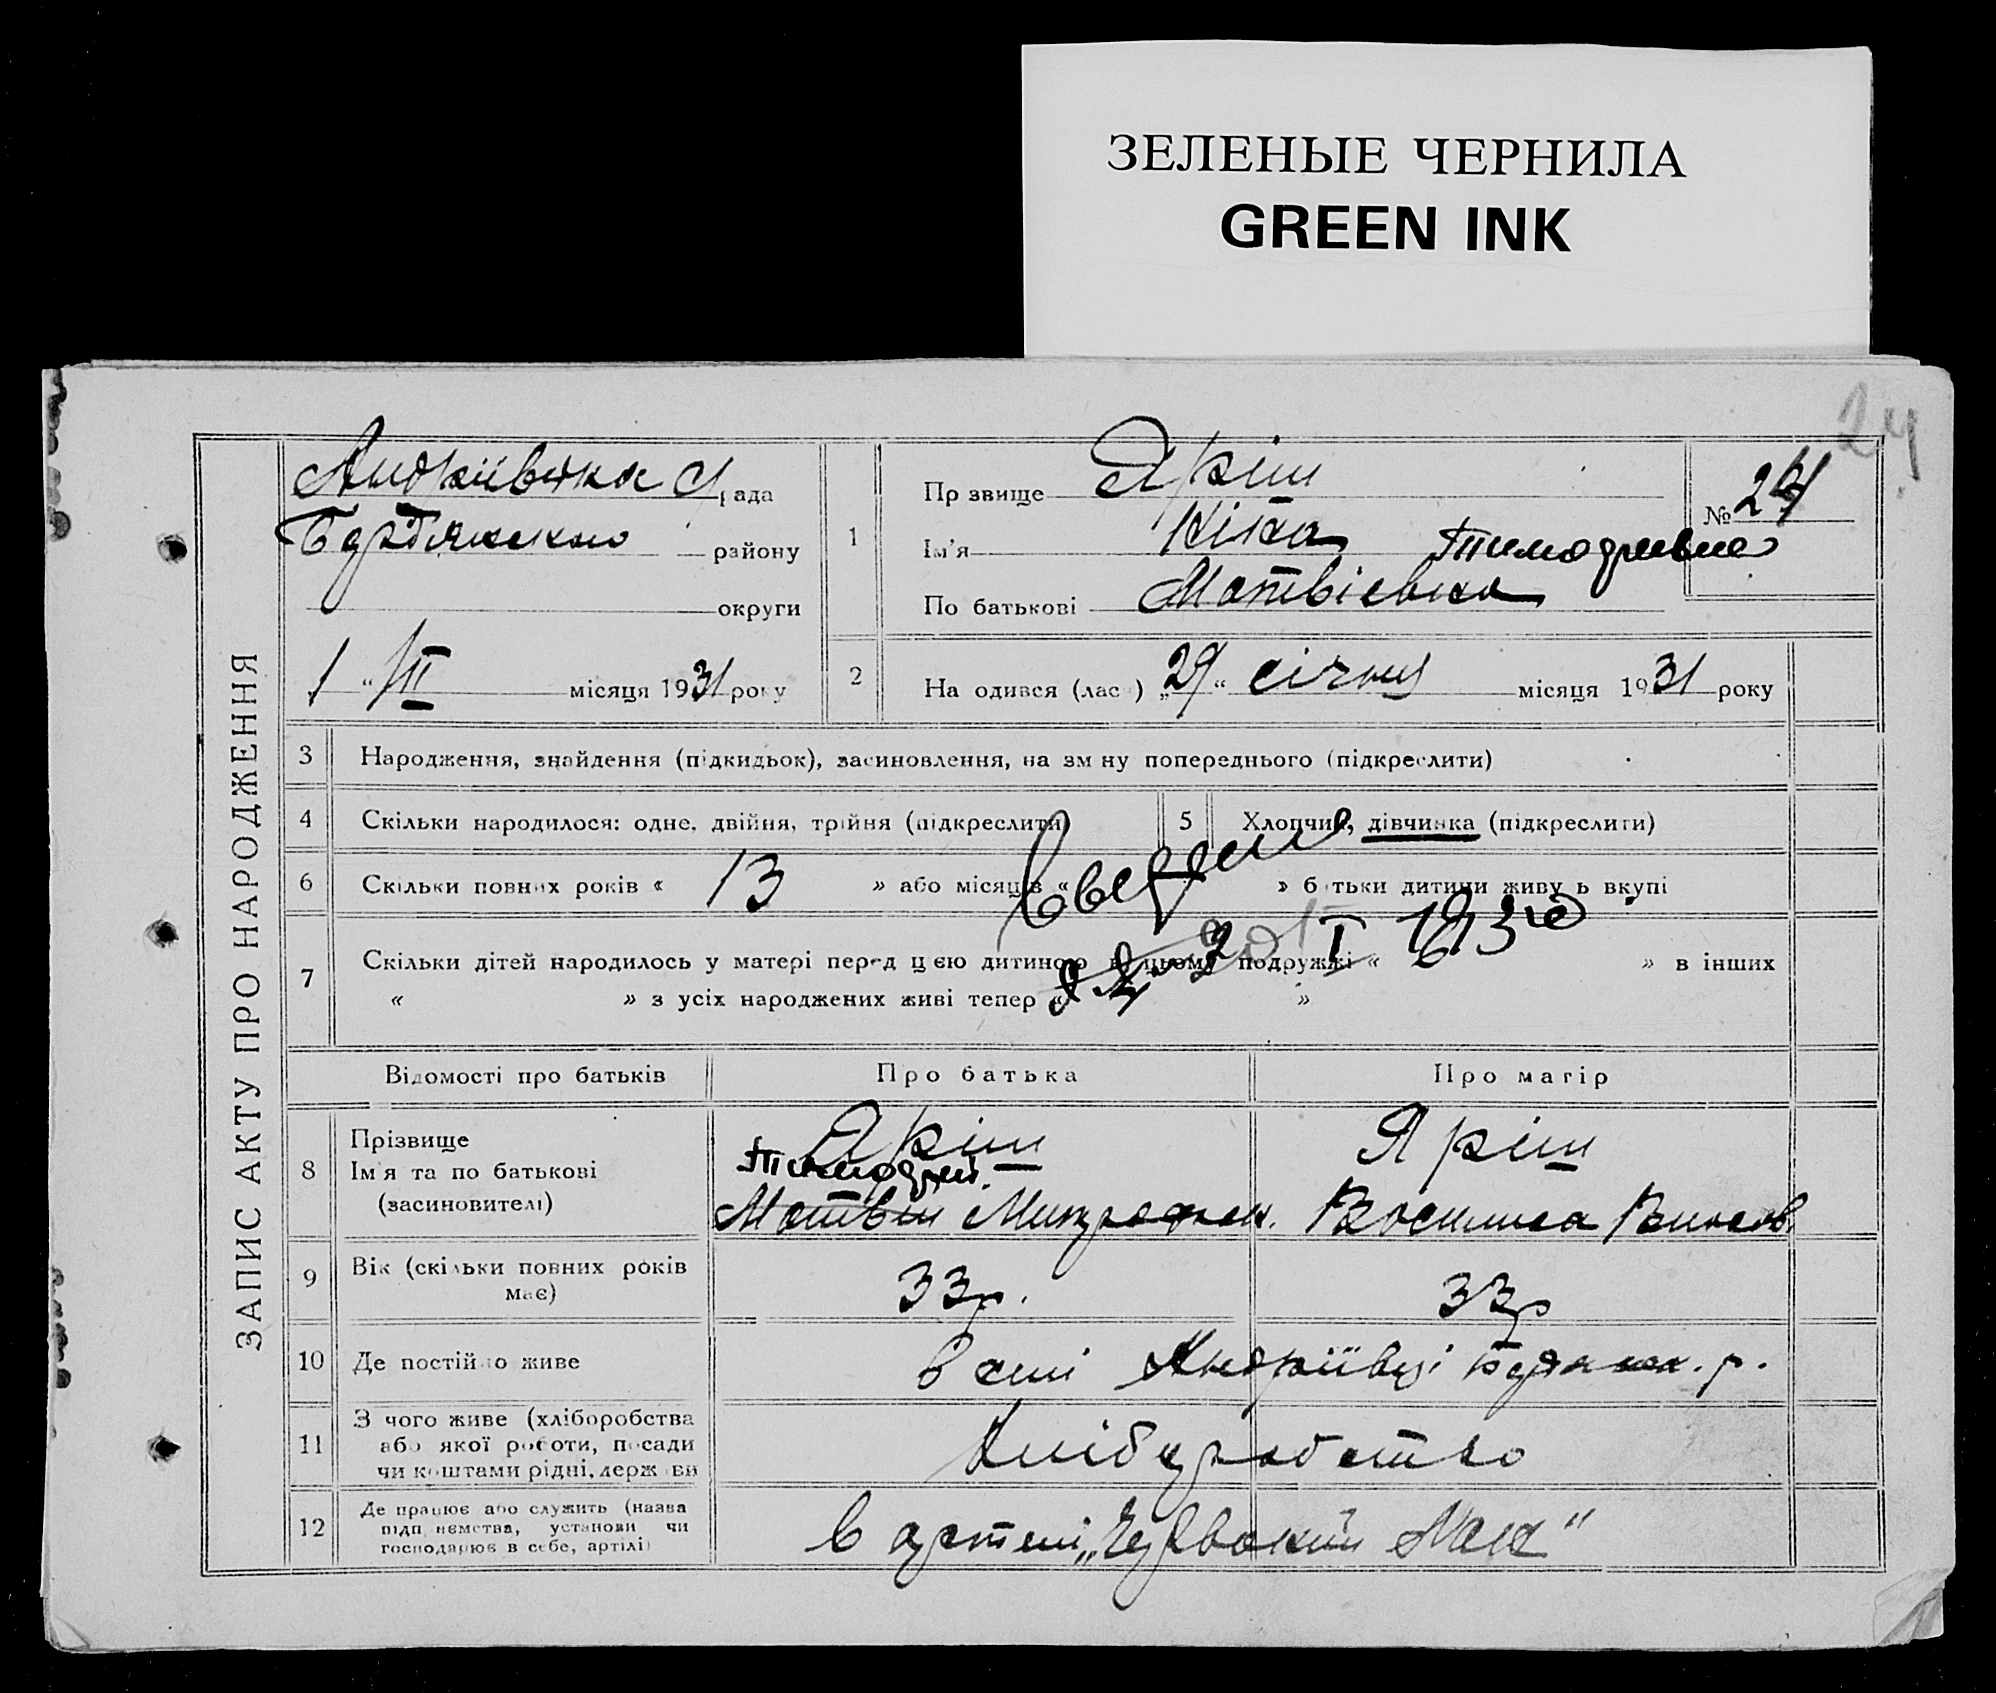 ЗЕЛЕНЫЕ ЧЕРНИЛА
GREEN INK
24
ЗАПИС АКТУ ПРО НАРОДЖЕННЯ
Андріївська с/рада
Бердянського району
округи
1 " III місяця 1931 року
1
Пр звище Яріш
Ім'я Ніна
Тимофіївна
По батькові Матвієвна
№ 24
2
На одився (лас ) „29 “ січня місяця 1931 року
3 Народження, знайдення (підкидьок), засиновлення, на зм ну попереднього (підкреслити)
4 Скільки народилося: одне, двійня, трійня (підкреслити)
5 Хлопчик, дівчинка (підкреслити)
6 Скільки повних років « 13 » або місяців « » батьки дитини живуть вкупі
7 Скільки дітей народилось у матері перед цією дитиною в цьому подружжі « 6 » в інших
« » з усіх народжених живі тепер « »
Відомості про батьків
Про батька
Про матір
8 Прізвище
Ім'я та по батькові
(засиновителі)
Яріш
Матвій
Яріш
Василиса
9 Вік (скільки повних років має)
33 р.
33 р
10 Де постійно живе
в селі Андріївці
11 З чого живе (хліборобства
або якої роботи, посади
чи коштами рідні, держави
Хліборобство
12 Де працює або служить (назва
підприємства, установи чи
господарює в себе, артілі)
в артелі „Червоний Маяк"